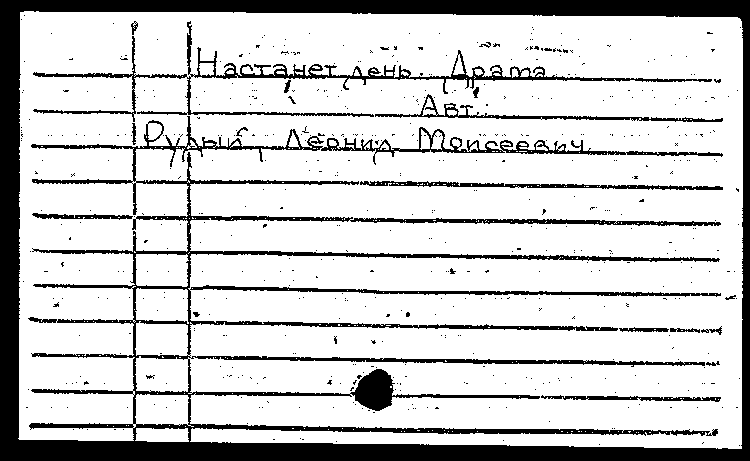 Настанет день. Драма
Авт.:
Рудый, Леонид Моисеевич